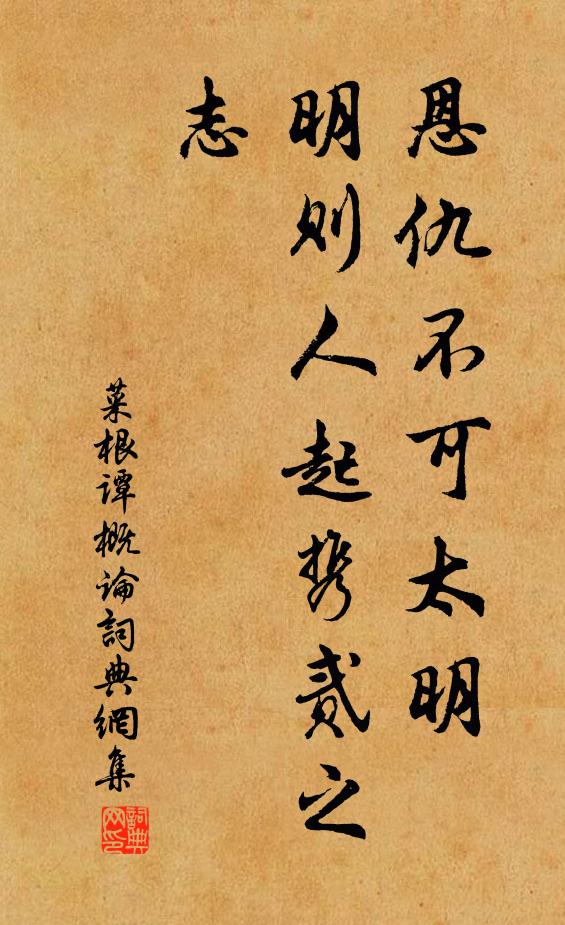 恩仇不可太明
明则人起携贰之
志
菜根谭概论词典網集
詞典网印